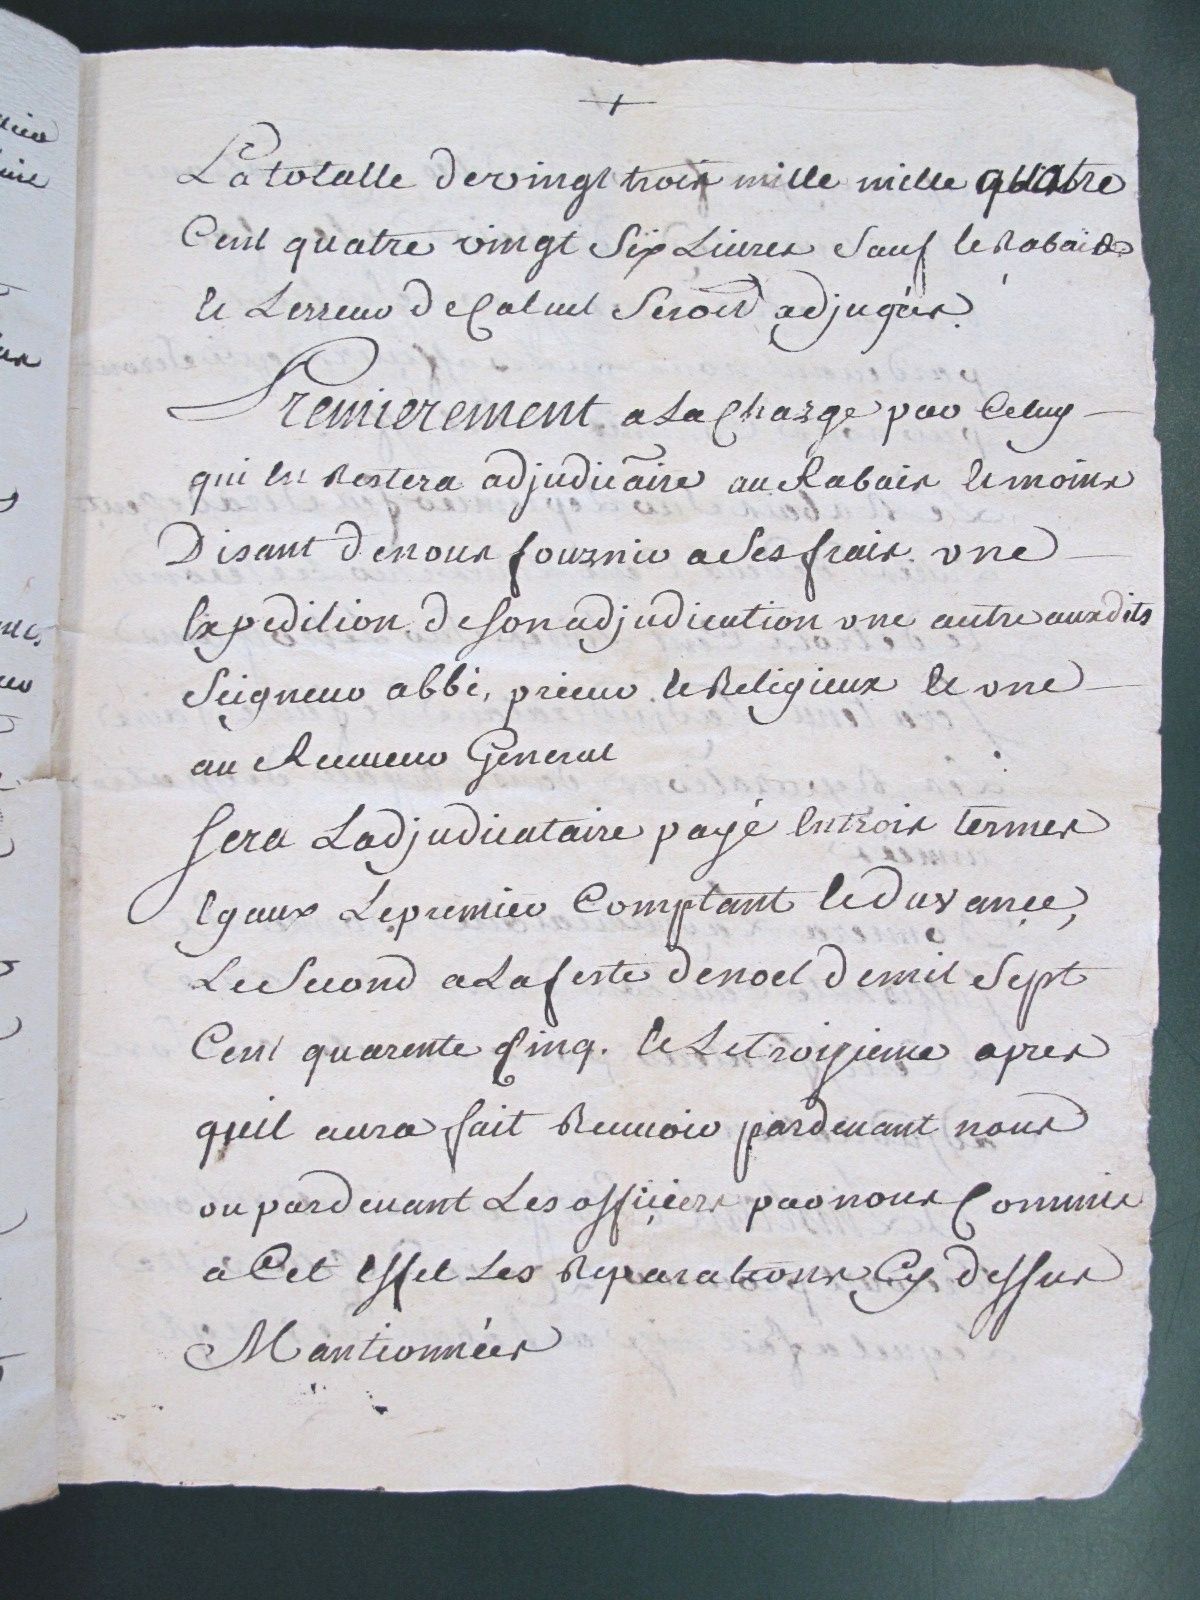 +
La totalle de vingt trois mille mille quatre
Cent quatre vingt Six Livres Sauf le Rabais
Seront adjugées.
Premierement a La Charge par Celuy
qui en Restera adjudicãire au Rabais le moins
Disant de nous fournir a Ses frais une
Expedition de Son adjudication une autre auxdits
Seigneur abbé, prieur et Religieux et une
au Receveur General
Sera L'adjudicataire payé En trois termes
Egaux Le premier Comptant et d'avance,
Le Second a La feste de noel de mil Sept
Cent quarente Cinq. et Le troisieme apres
quil aura fait Recevoir pardevant nous
ou pardevant Les officiers par nous Commis
a Cet Effet Les Reparations Cy dessus
Mantionnées